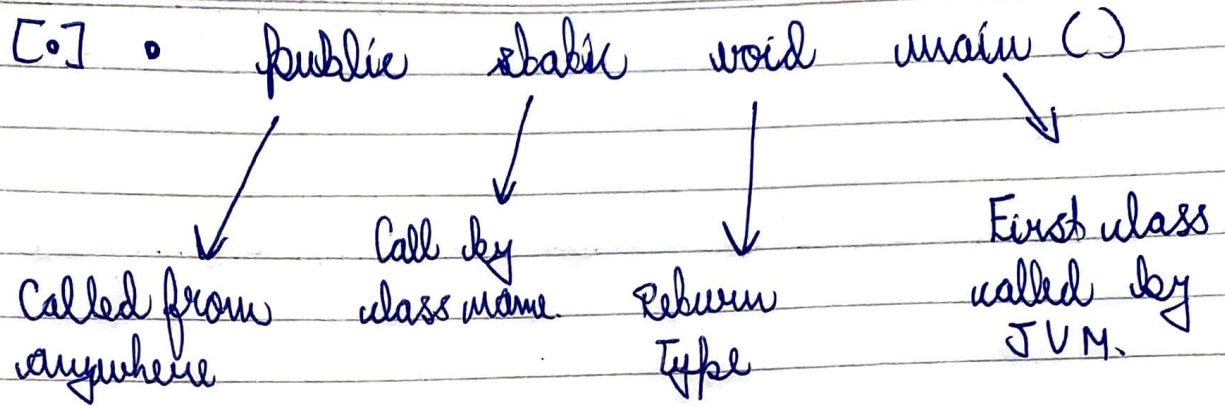 [•] • public static void main ()
Called from
anywhere
Call by
class name.
Return
Type
First class
called by
JVM.